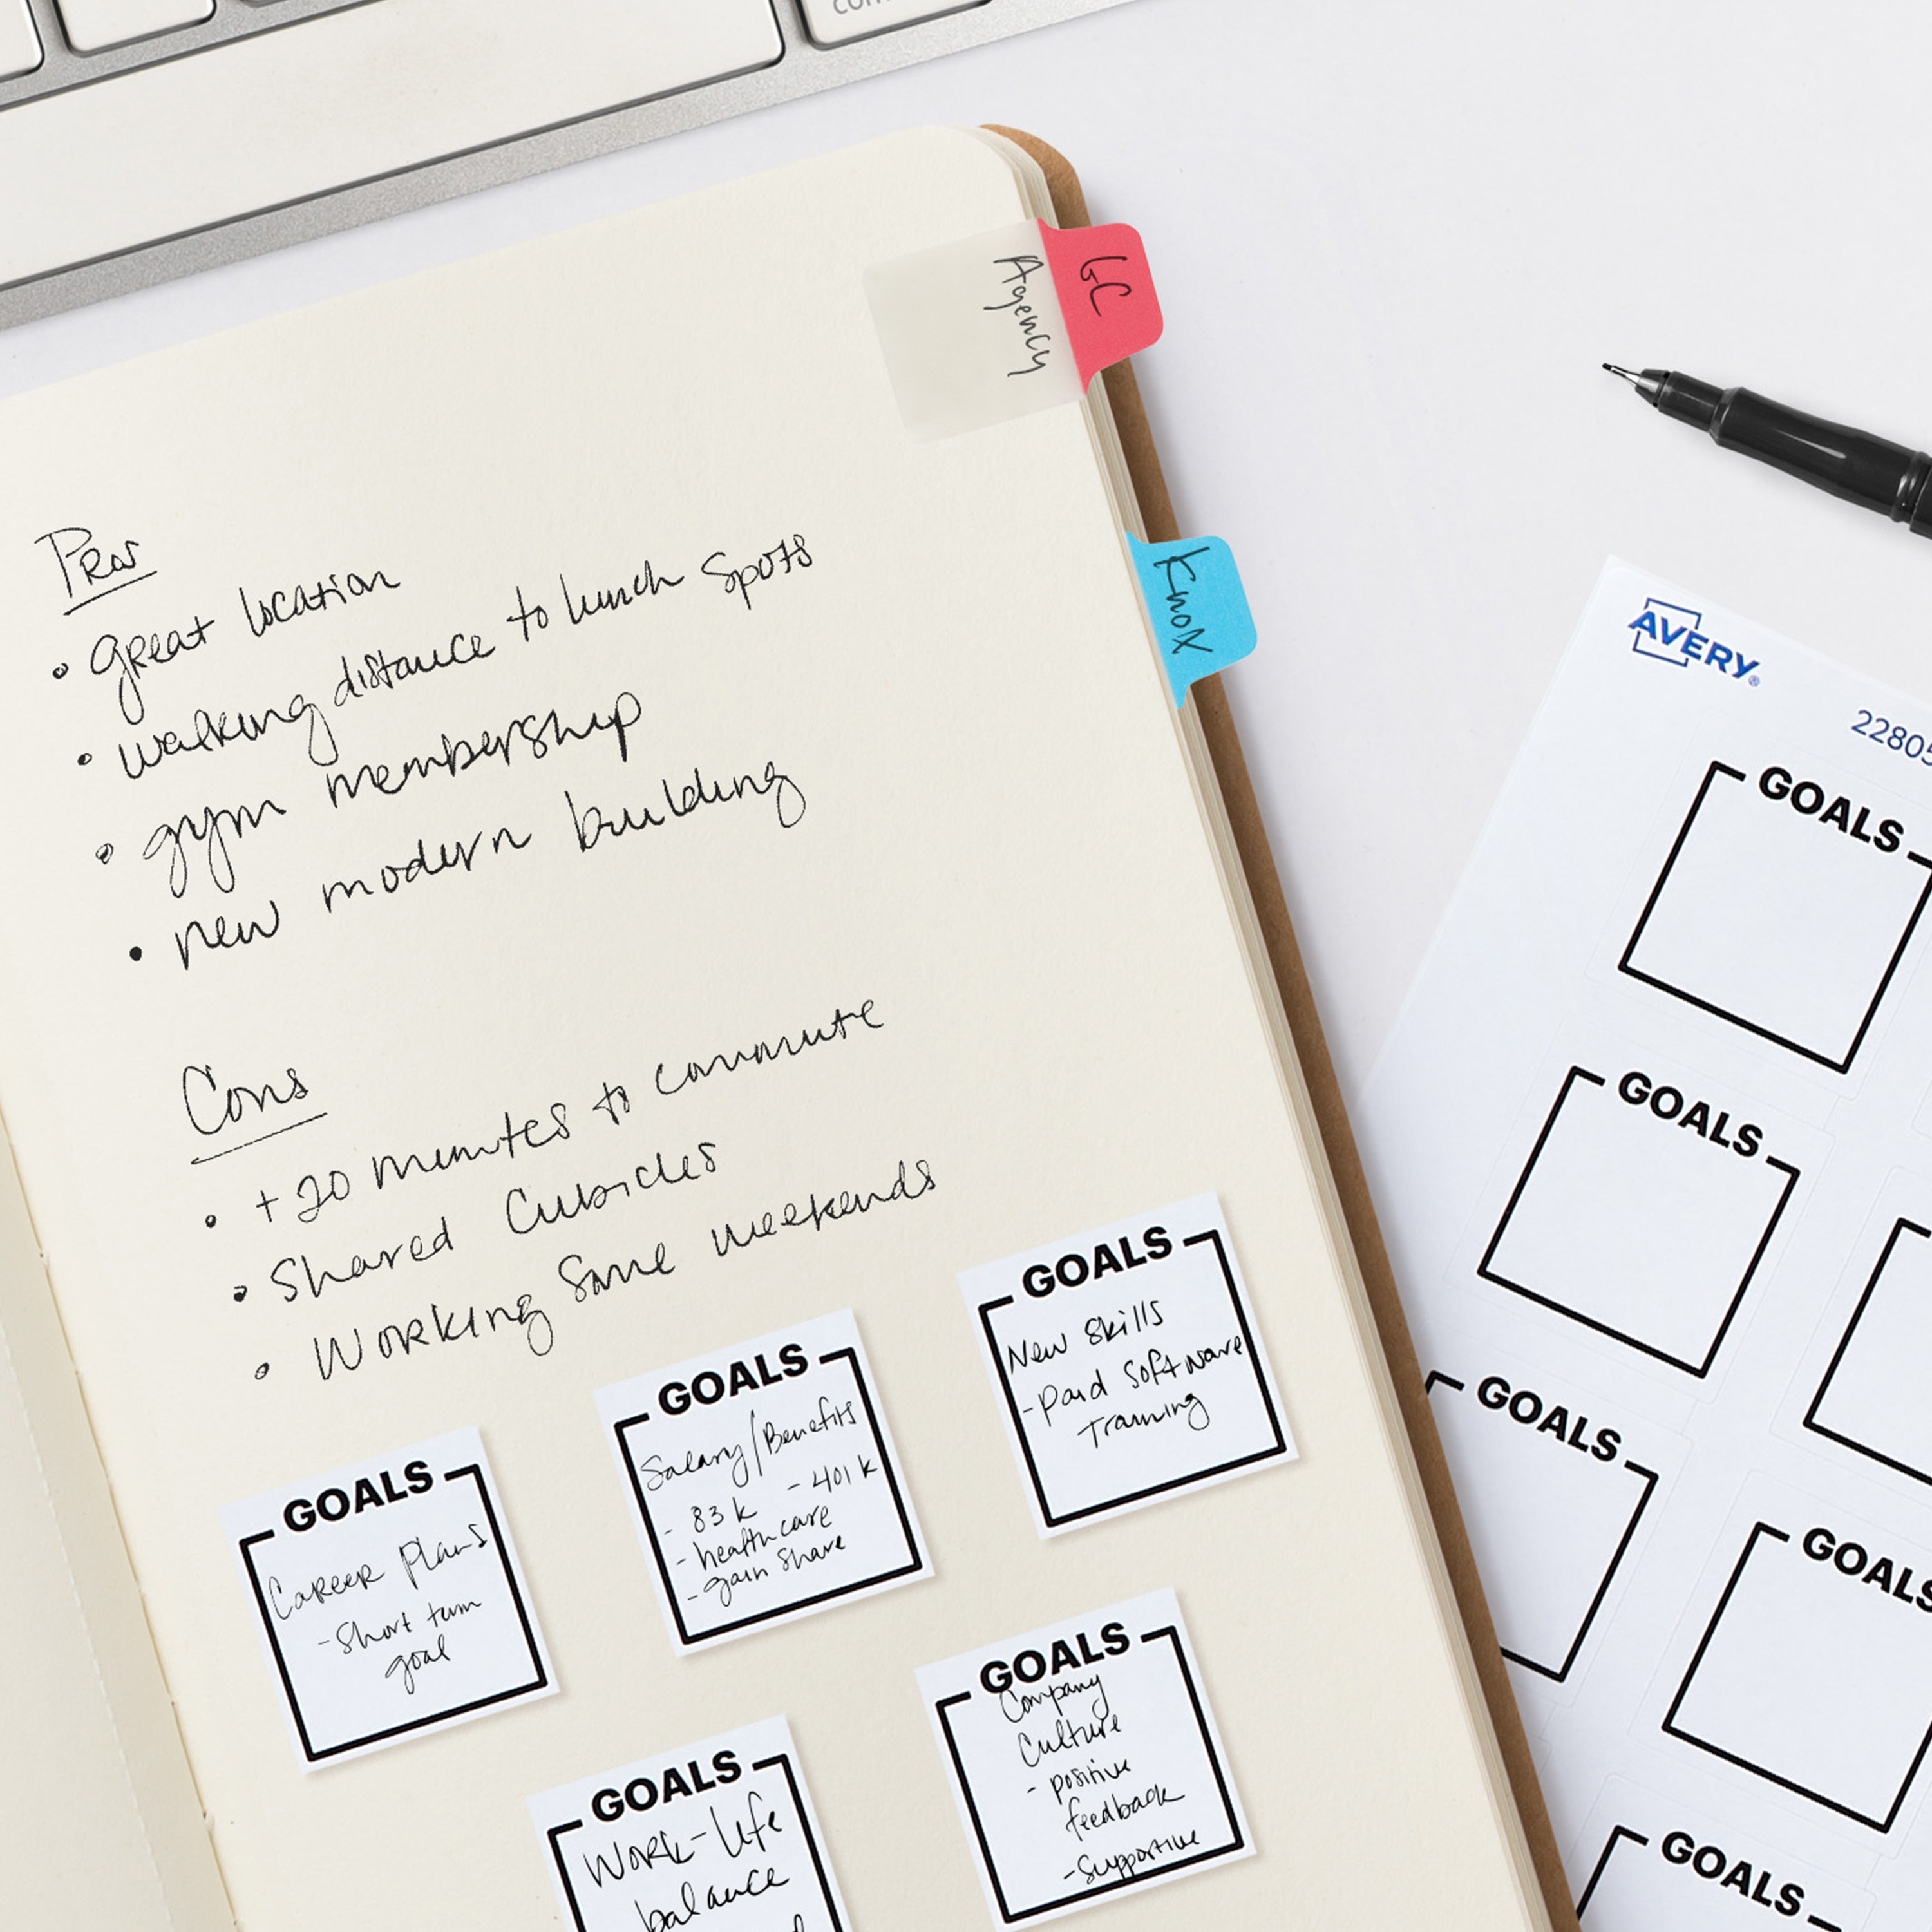 GC
Agency
Knox
Pros
• great location
• walking distance to lunch spots
• gym membership
• new modern building
Cons
• +20 minutes to commute
• Shared Cubicles
• Working Some weekends
GOALS
Career Plans
- Short term
goal
GOALS
Salary/Benefits
- 83k - 401k
- healthcare
- gain share
GOALS
New skills
- Paid Software
Training
GOALS
Work-life
balance
GOALS
Company
Culture
- positive
feedback
- Supportive
AVERY®
22805
GOALS
GOALS
GOALS
GOALS
GOALS